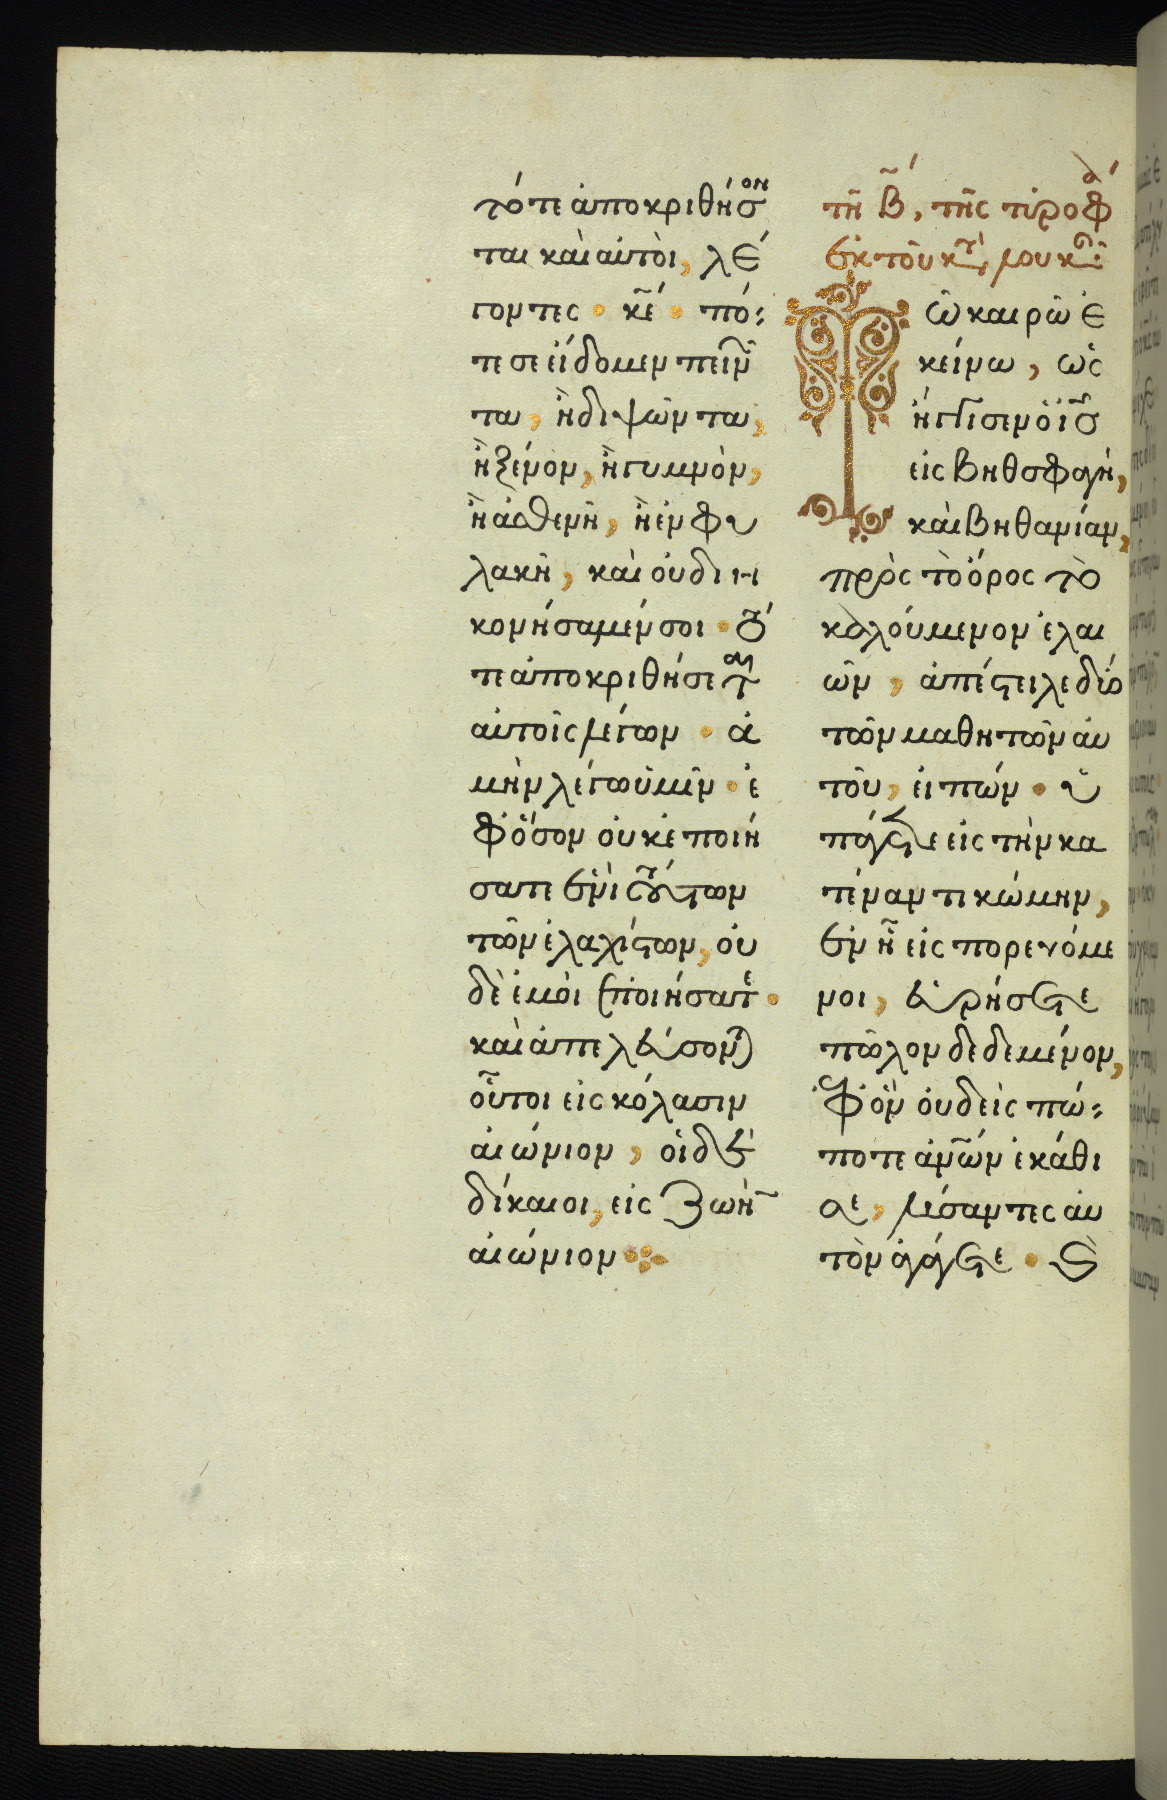 τότε ἀποκριθήσον
ται καὶ αὐτοὶ, λέ
γοντες · κε · πό-
τε σε εἴδομεν πεινῶν
τα, ἢ διψῶντα,
ἢ ξένον, ἢ γυμνὸν,
ἢ ἀσθενῆ, ἢ ἐν φυ
λακῆ, καὶ οὐ διη
κονήσαμέν σοι · τό
τε ἀποκριθήσεται
αὐτοῖς λέγων · ἀ
μὴν λέγω ὑμῖν · ἐ
φ' ὅσον οὐκ ἐποιή
σατε ἑνὶ τούτων
τῶν ἐλαχίστων, οὐ
δὲ ἐμοὶ ἐποιήσατε ·
καὶ ἀπελεύσονται
οὗτοι εἰς κόλασιν
αἰώνιον, οἱ δὲ
δίκαιοι, εἰς ζωὴν
αἰώνιον
τῆ Β, τῆς προφ
ἐκ τοῦ κατὰ λουκᾶν
Τῶ καιρῶ ἐ
κείνω, ὡς
ἤγγισεν ὁ ις
εἰς Βηθσφαγὴ,
καὶ Βηθανίαν,
πρὸς τὸ ὄρος τὸ
καλούμενον ἐλαι
ῶν, ἀπέστειλε δύο
τῶν μαθητῶν αὐ
τοῦ, εἰπών · ὑ
πάγετε εἰς τὴν κα
τέναντι κώμην,
ἐν ἧ εἰσπορευόμε
νοι, εὑρήσετε
πῶλον δεδεμένον,
ἐφ' ὃν οὐδεὶς πώ-
ποτε ἀνων ἐκάθι
σε, λύσαντες αὐ
τὸν ἀγάγετε · καὶ